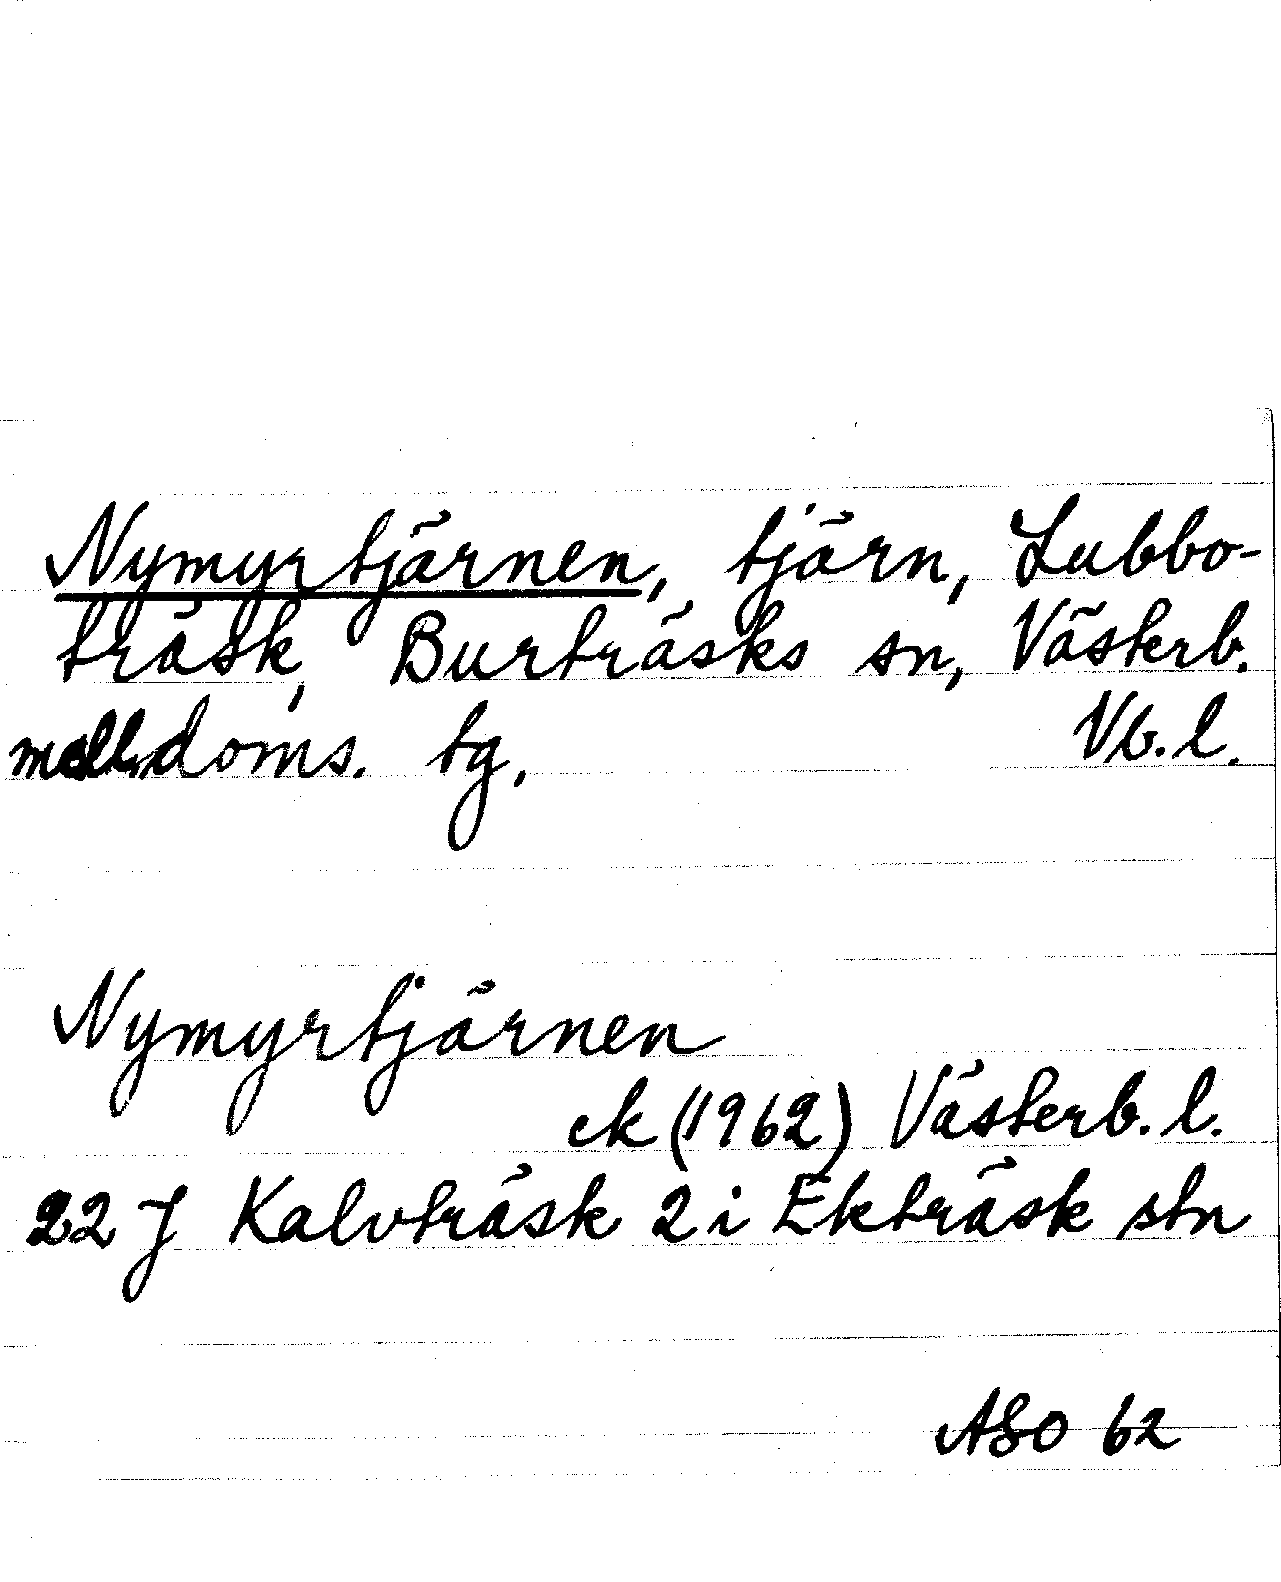 Nymyrtjärnen, tjärn, Lubbo-
träsk, Burträsks sn, Västerb.
mell. doms. tg. Vb. l.
Nymyrtjärnen
ek (1962) Västerb. l.
22 J Kalvträsk 2 i Ekträsk stn
ASO 62